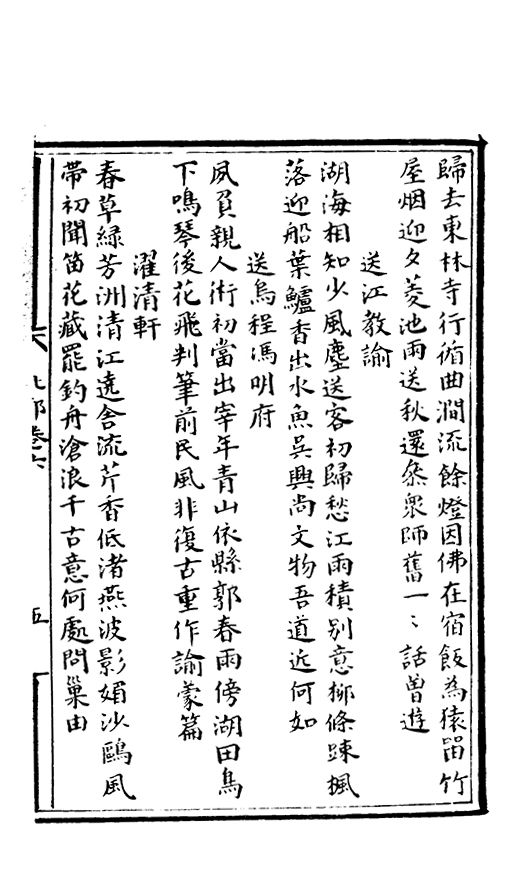 歸去東林寺行循曲澗流餘燈因佛在宿飯為猿留竹
屋烟迎夕菱池雨送秋還叅衆師舊一〻話曾遊
送江教諭
湖海相知少風塵送客初歸愁江雨積别意栁條踈楓
落迎船葉鱸香出水魚吳興尚文物吾道近何如
送烏程馮明府
夙負親人術初當出宰年青山依縣郭春雨傍湖田鳥
下鳴琴後花飛判筆前民風非復古重作諭蒙篇
濯清軒
春草綠芳洲清江遶舍流芹香低渚燕波影媚沙鷗風
帶初聞笛花藏罷釣舟滄浪千古意何處問巢由
卷六
五